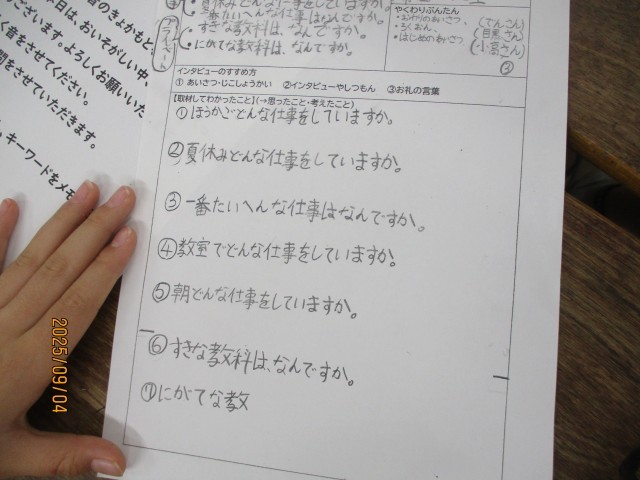 夏休みどんな仕事をしていますか。
一番たいへんな仕事はなんですか。
すきな教科は、なんですか。
にがてな教科は、なんですか。
プライベート
やくわりぶんたん
・おわりのあいさつ、
・ろくおん、
・はじめのあいさつ
③
インタビューのすすめ方
① あいさつ・じこしょうかい ②インタビューやしつもん ③お礼の言葉
【取材してわかったこと】(→思ったこと・考えたこと)
①ほうかごどんな仕事をしていますか。
②夏休みどんな仕事をしていますか。
③一番たいへんな仕事はなんですか。
④教室でどんな仕事をしていますか。
⑤朝どんな仕事をしていますか。
⑥すきな教科は、なんですか。
⑦にがてな教
日は、おいそがしい中、
ございます。よろしくお願いいた
く音をさせてください。
問をさせていただきます。
、キーワードをメモ
2025/09/04